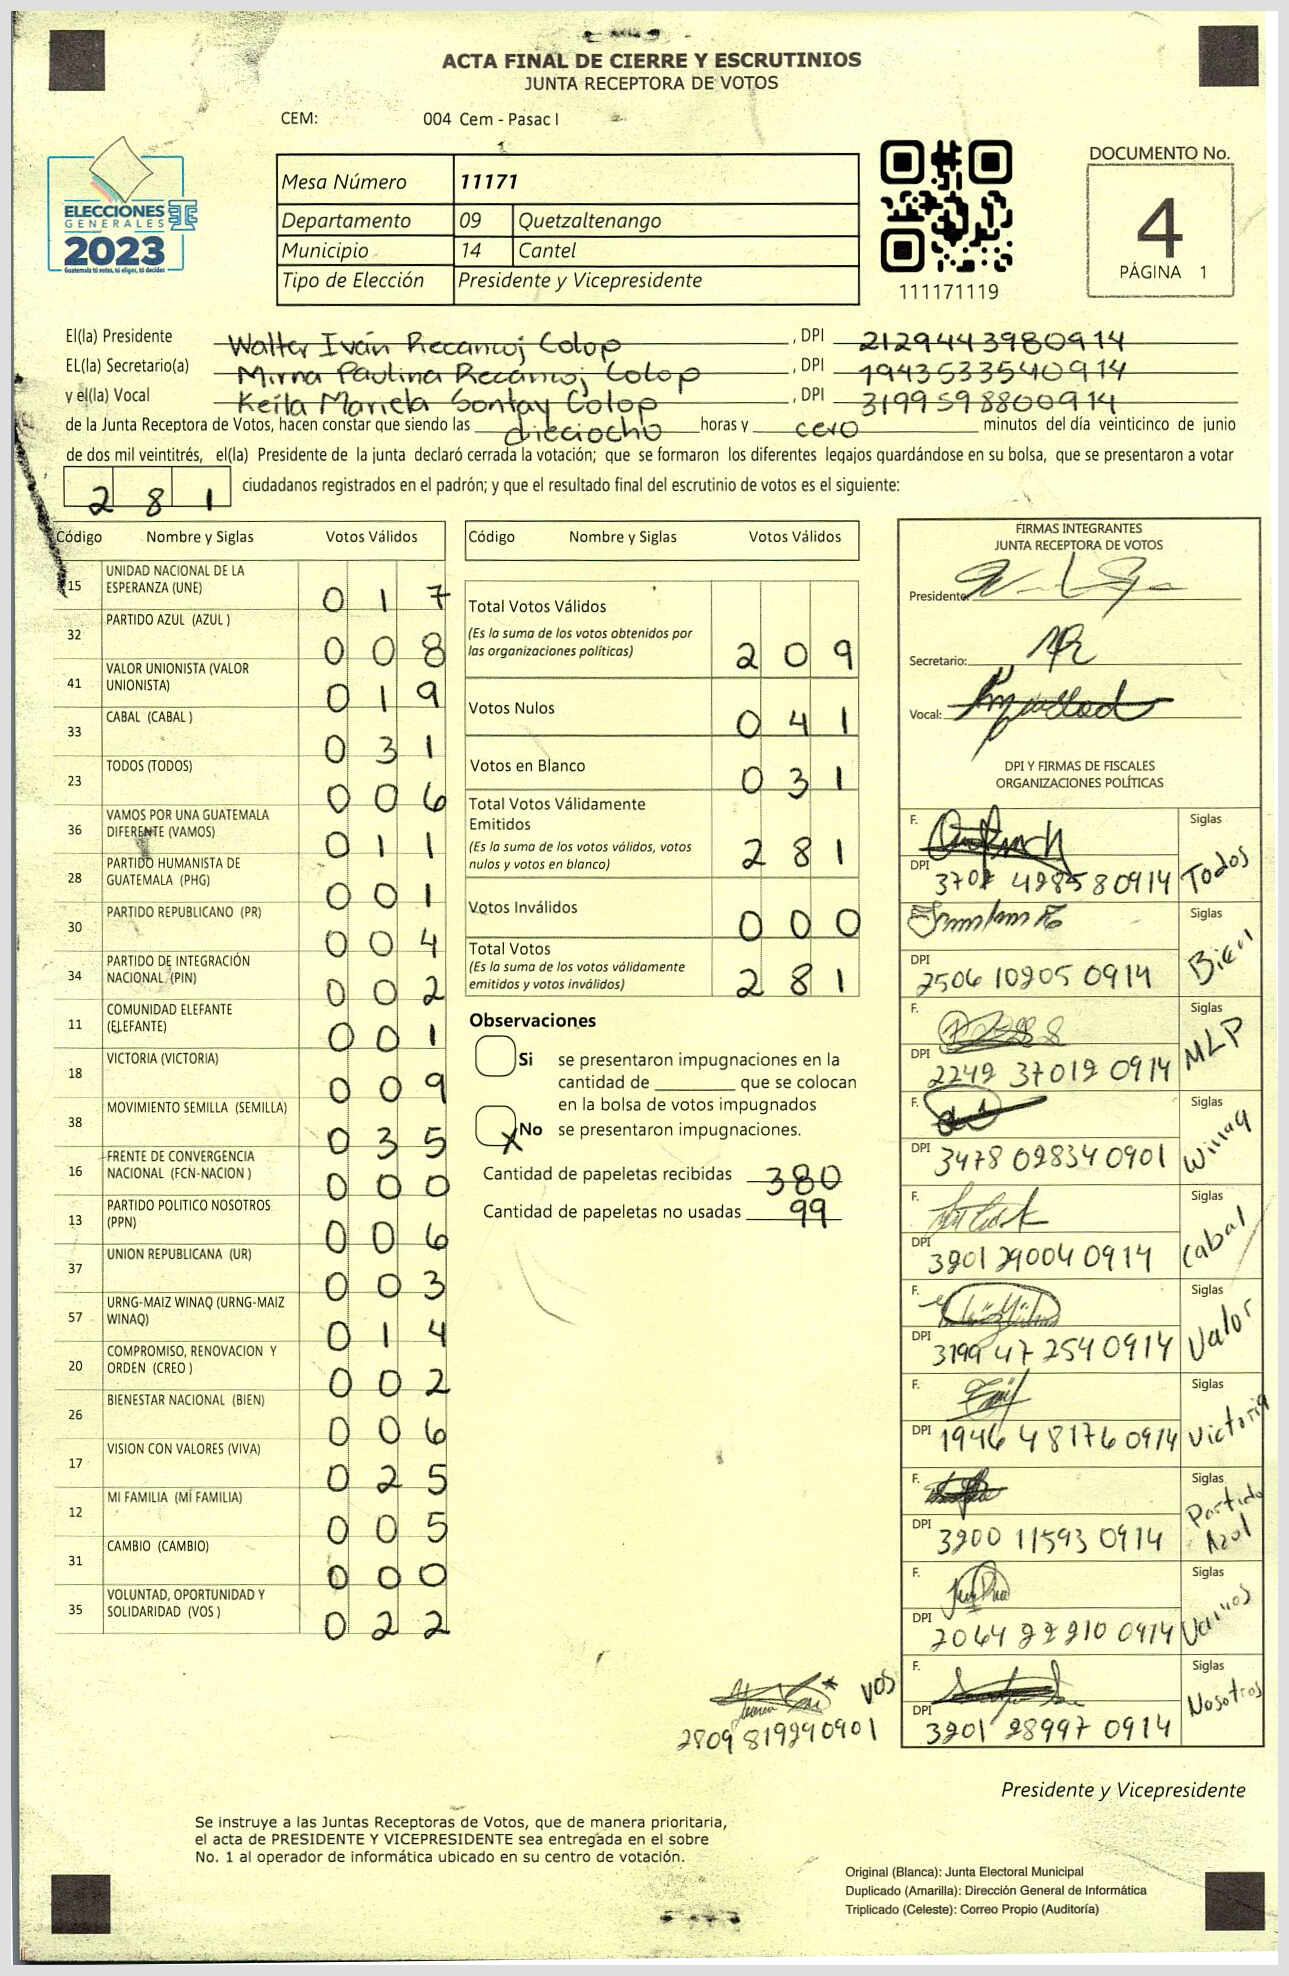 ACTA FINAL DE CIERRE Y ESCRUTINIOS
JUNTA RECEPTORA DE VOTOS
CEM: 004 Cem - Pasac I
ELECCIONES
GENERALES
2023
Guatemala tú votas, tú eliges, tú decides
Mesa Número 11171
Departamento 09 Quetzaltenango
Municipio 14 Cantel
Tipo de Elección Presidente y Vicepresidente
111171119
DOCUMENTO No.
4
PÁGINA 1
El(la) Presidente Walter Iván Recancoj Colop , DPI 2129443980914
EL(la) Secretario(a) Mirna Paulina Recancoj Colop , DPI 1943533540914
y el(la) Vocal Keila Mariela Sontay Colop , DPI 3199598800914
de la Junta Receptora de Votos, hacen constar que siendo las dieciocho horas y cero minutos del día veinticinco de junio
de dos mil veintitrés, el(la) Presidente de la junta declaró cerrada la votación; que se formaron los diferentes legajos guardándose en su bolsa, que se presentaron a votar
281 ciudadanos registrados en el padrón; y que el resultado final del escrutinio de votos es el siguiente:
Código Nombre y Siglas Votos Válidos
15 UNIDAD NACIONAL DE LA ESPERANZA (UNE) 017
32 PARTIDO AZUL (AZUL ) 008
41 VALOR UNIONISTA (VALOR UNIONISTA) 019
33 CABAL (CABAL ) 031
23 TODOS (TODOS) 006
36 VAMOS POR UNA GUATEMALA DIFERENTE (VAMOS) 011
28 PARTIDO HUMANISTA DE GUATEMALA (PHG) 001
30 PARTIDO REPUBLICANO (PR) 004
34 PARTIDO DE INTEGRACIÓN NACIONAL (PIN) 002
11 COMUNIDAD ELEFANTE (ELEFANTE) 001
18 VICTORIA (VICTORIA) 009
38 MOVIMIENTO SEMILLA (SEMILLA) 035
16 FRENTE DE CONVERGENCIA NACIONAL (FCN-NACION ) 000
13 PARTIDO POLITICO NOSOTROS (PPN) 006
37 UNION REPUBLICANA (UR) 003
57 URNG-MAIZ WINAQ (URNG-MAIZ WINAQ) 014
20 COMPROMISO, RENOVACION Y ORDEN (CREO ) 002
26 BIENESTAR NACIONAL (BIEN) 006
17 VISION CON VALORES (VIVA) 025
12 MI FAMILIA (MI FAMILIA) 005
31 CAMBIO (CAMBIO) 000
35 VOLUNTAD, OPORTUNIDAD Y SOLIDARIDAD (VOS ) 022
Código Nombre y Siglas Votos Válidos
Total Votos Válidos
(Es la suma de los votos obtenidos por
las organizaciones políticas) 209
Votos Nulos 041
Votos en Blanco 031
Total Votos Válidamente
Emitidos
(Es la suma de los votos válidos, votos
nulos y votos en blanco) 281
Votos Inválidos 000
Total Votos
(Es la suma de los votos válidamente
emitidos y votos inválidos) 281
Observaciones
Si se presentaron impugnaciones en la
cantidad de ________ que se colocan
en la bolsa de votos impugnados
X No se presentaron impugnaciones.
Cantidad de papeletas recibidas 380
Cantidad de papeletas no usadas 99
FIRMAS INTEGRANTES
JUNTA RECEPTORA DE VOTOS
Presidente:
Secretario:
Vocal:
DPI Y FIRMAS DE FISCALES
ORGANIZACIONES POLÍTICAS
F. Siglas
DPI Todos
F. Siglas
DPI 2506 10205 0914 Bien
F. Siglas
DPI 2249 37019 0914 MLP
F. Siglas
DPI 3478 02834 0901 Winaq
F. Siglas
DPI 3201 29004 0914 Cabal
F. Siglas
DPI 3199 47 254 0914 Valor
F. Siglas
DPI 1946 48176 0914 Victoria
F. Siglas
DPI 3200 11593 0914 Partido Azul
F. Siglas
DPI 2064 22210 0914 Vamos
F. Siglas
DPI 3201 28997 0914 Nosotros
VOS
2809 819240901
Presidente y Vicepresidente
Se instruye a las Juntas Receptoras de Votos, que de manera prioritaria,
el acta de PRESIDENTE Y VICEPRESIDENTE sea entregada en el sobre
No. 1 al operador de informática ubicado en su centro de votación.
Original (Blanca): Junta Electoral Municipal
Duplicado (Amarilla): Dirección General de Informática
Triplicado (Celeste): Correo Propio (Auditoría)